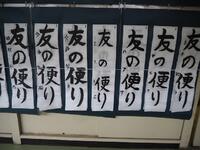 友の便り
友の便り
友の便り
友の便り
友の便り
友の便り
友の便り